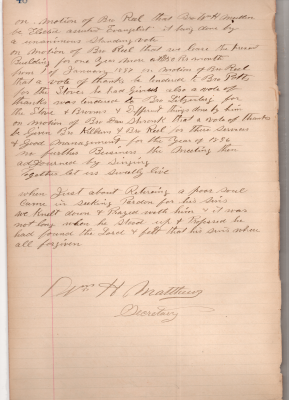 on motion of Bro Reel that Bro Wm H Matthews
be Elected assisted Evangelist it being done by
a unanimous Standing vote
on motion of Bro Reel that we leave the
Building for one year more at $12 a month
from 1 of January 1897 on motion of Bro Reel
that a vote of thanks be tendered to Bro Potts
for the Stove he had Given also a vote of
thanks was tendered to Bro Fitzgerling for
the Stove & Burner & Diffrent things done by him
on motion of Bro that a vote of thanks
be Given Bro & Bro Reel for there services
& Good management for the year of 1896
no further Business the Meeting then
adjourned by Singing
Together let us sweetly live
when Just about Retireing a poor soul
Came in seeking Pardon for his sins
we Knelt down & Prayed with him & it was
not long when he stood up & Professed he
had found the Lord & felt that his sins where
all forgiven
Wm H Matthews
Secretary